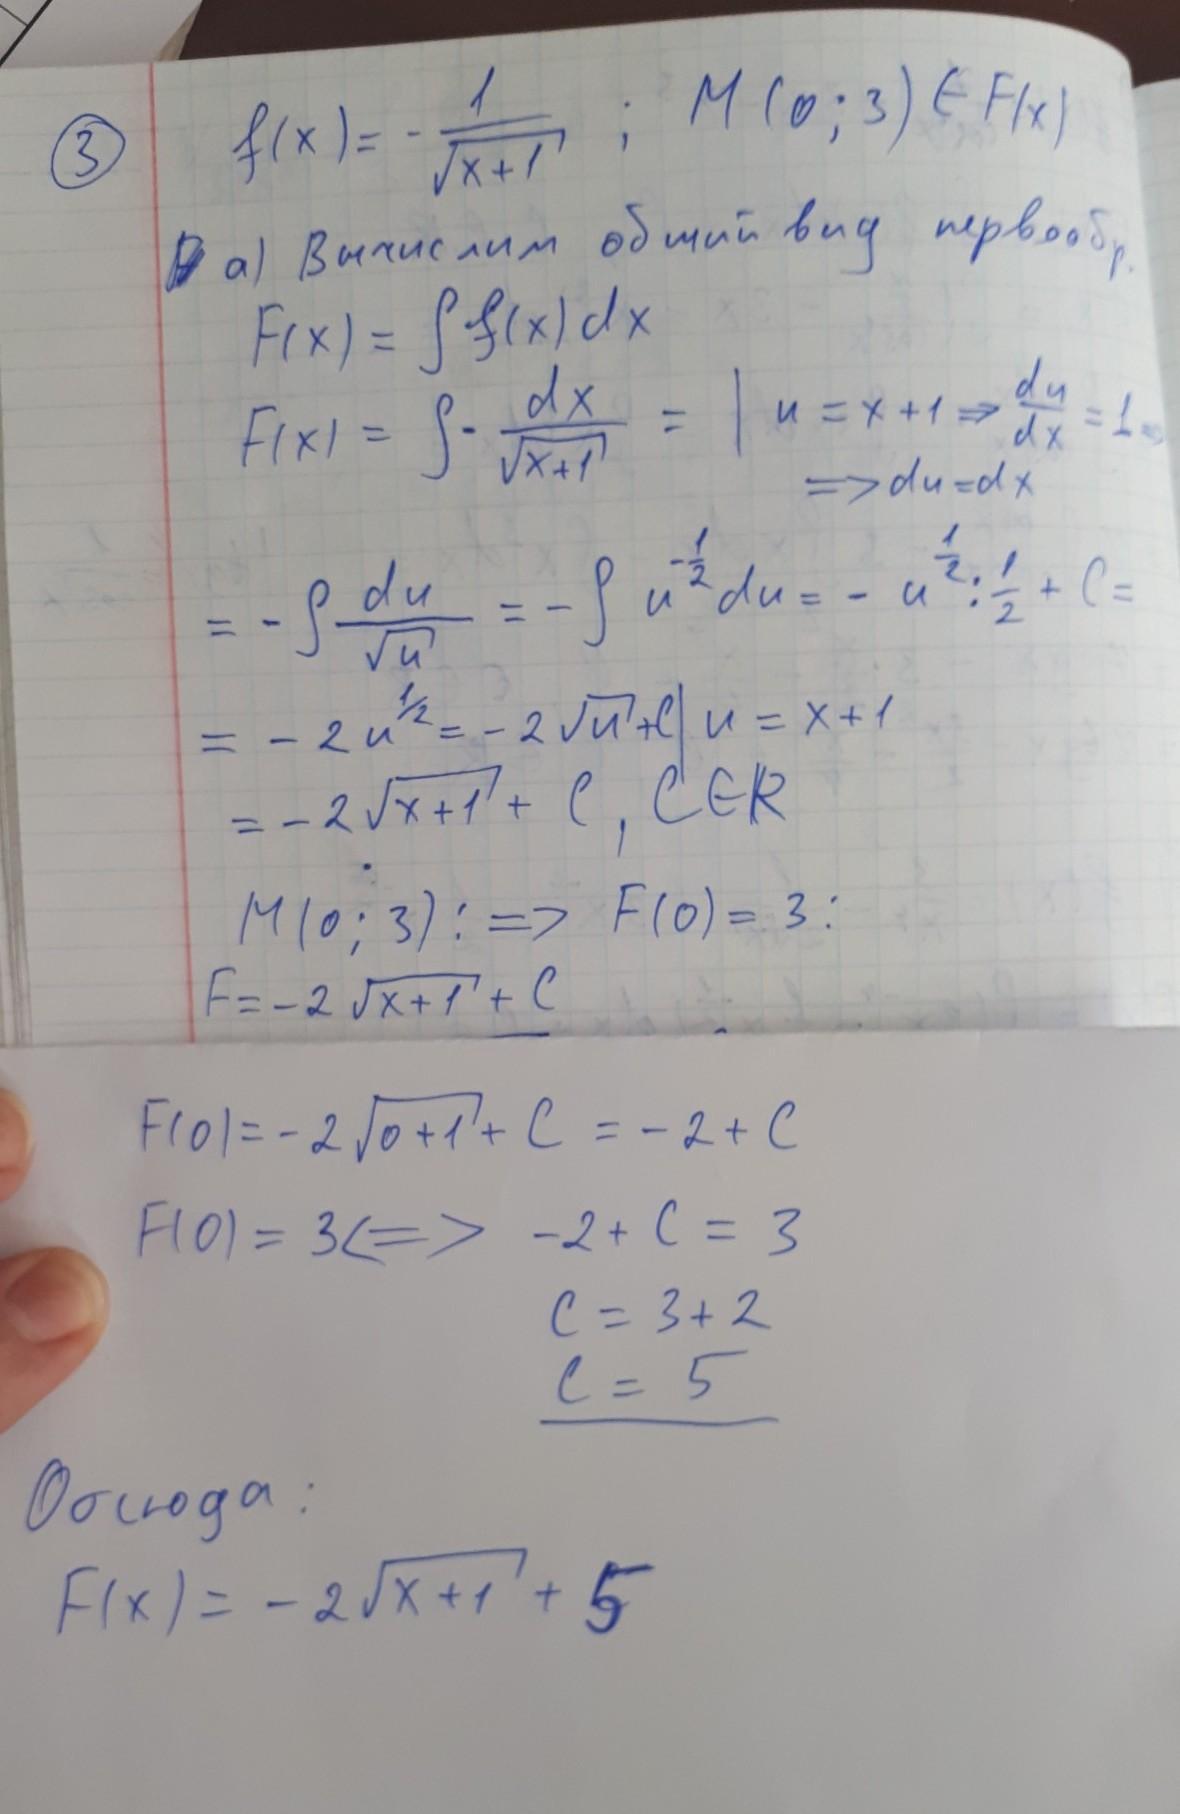 ③ f(x) = - 1/√(x+1) ; M(0;3) ∈ F(x)
а) Вычислим общий вид первообр.
F(x) = ∫ f(x) dx
F(x) = ∫ - dx/√(x+1) = | u = x+1 => du/dx = 1 =>
=> du = dx
= - ∫ du/√u = - ∫ u^(-1/2) du = - u^(1/2) : 1/2 + C =
= - 2 u^(1/2) = - 2 √u + C | u = x+1
= - 2 √(x+1) + C, C ∈ R
M(0;3): => F(0) = 3:
F = - 2 √(x+1) + C
F(0) = - 2 √(0+1) + C = - 2 + C
F(0) = 3 <=> - 2 + C = 3
C = 3 + 2
C = 5
Отсюда:
F(x) = - 2 √(x+1) + 5